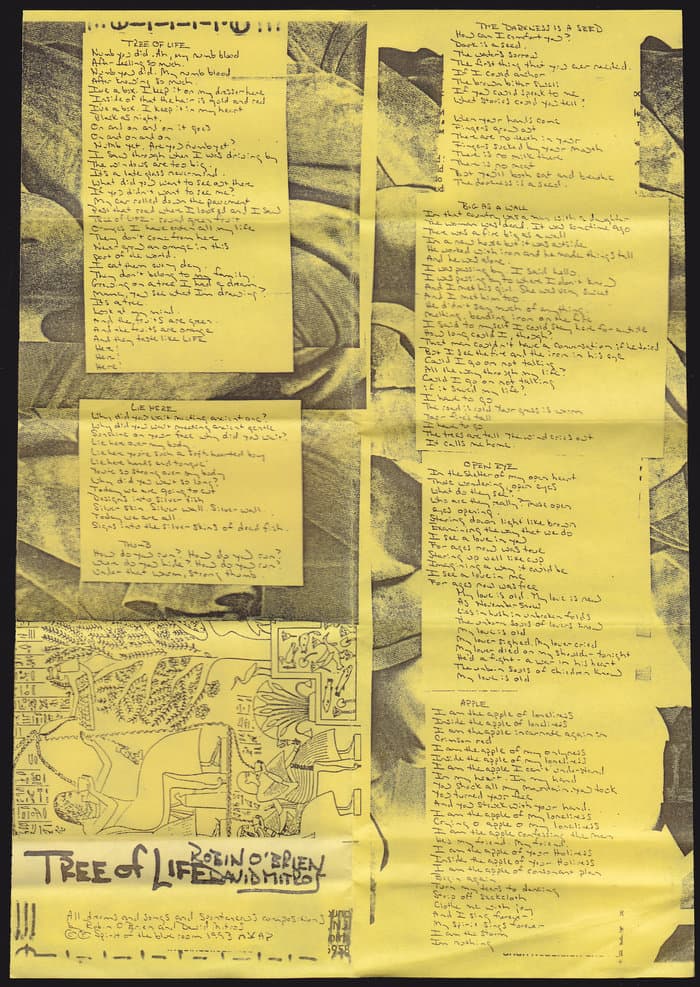 TREE OF LIFE
Numb you did. Ah, my numb blood
After feeling so much.
Numb you did. My numb blood
After knowing so much
I've a box. I keep it on my dresser here
Inside of that the hair is gold and red
I've a box. I keep it in my heart
Black as night.
On and on and on it goes
On and on and on.
Numb yet. Are you numb yet?
I saw through when I was driving by
The windows are too big.
It's a late glass nevermind.
What did you want to see out there
If you didn't want to see me?
My car rolled down the pavement
Past that road when I looked and I saw
TREE OF LIFE. round green fruit
Oranges I have eaten all my life
They don't come from here.
Never grow an orange in this
part of the world.
I eat them every day.
They don't belong to my family.
Growing on a tree I had a dream
Mommy, you see what I'm drawing
It's a tree
Look at my mind.
And the fruits are green
And the fruits are orange
And they taste like LIFE
Here!
Here!
Here!
LIE HERE
Why did you wait meeting ancient one?
Why did you wait meeting ancient gentle
Sunshine on your face why did you wait?
Lie here over my body
Lie here you're such a soft hearted boy
Lie here hands and tongue
You're so strong over my body
Why did you wait so long?
Today we are going to cut
Designs into silver fish
Silver skin. Silver wall. Silver wall.
Today we are all
Signs into the silver skins of dead fish.
THUMB
How do you run? How do you run?
When do you hide? How do you run?
Under that warm, strong thumb.
TREE OF LIFE
ROBIN O'BRIEN
DAVID MITROS
All drums and songs and spontaneous compositions
by Robin O'Brien and David Mitros
© Ⓟ Spirit of the blue room 1993 ASCAP
THE DARKNESS IS A SEED
How can I comfort you?
Dark is a seed.
The water's sorrow
The first thing that you ever needed.
If I could anchor
The brown bitter swell
If you could speak to me
What stories could you tell?
When your hands come
Fingers grow out
There are no teeth in your
Fingers sucked by your mouth
There is no milk there
There is no meat
But you'll both eat and breathe
The darkness is a seed.
BIG AS A WALL
In that country was a man with a daughter
The woman was dead. It was sometime ago
There was a fire big as a wall
In a new house but it was outside
He worked with iron and he made things tall
And he was alone.
I was passing by I said hello
I was passing to where I don't know
And I met his girl She was very sweet
And I met him too
He didn't say much of anything
Melting, bending iron on the fire
I said to myself I could stay here for awhile
How long could I, though?
That man couldn't have a conversation if he tried
But I see the fire and the iron in his eye
Could I go on not talking
All the way through my life?
Could I go on not talking
if it saved my life?
I have to go
The road is cold Your grass is warm
Your fire is tall
I have to go
The trees are tall The wind cries out
It calls me home.
OPEN EYE
In the shelter of my open heart
Those wondering, open eyes
What do they see?
Who are they really? Those open
eyes opening
Staring down light like brown
Examining the way that we do
I see a love in you
For ages now was true
Staring up well like cup
Imagining a way it could be
I see a love in me
For ages now was free
My love is old. My love is new
As November snow
Lies in hush in unbroken folds
The unborn souls of lovers know
My love is old
My lover sighed, My lover cried
My lover died on my shoulder tonight
He'd a fight - a war in his heart
The unborn souls of children know
My love is old
APPLE
I am the apple of loneliness
Inside the apple of loneliness
I am the apple incarnate again in
Crimson red
I am the apple of my onlyness
Inside the apple of my loneliness
I am the apple I can't understand
In my heart. In my hand
You shook all my mountain you took
You turned your face
And you struck with your hand.
I am the apple of my loneliness
Crying o apple o my loneliness
I am the apple confessing the man
He's my friend. My friend.
I am the apple of your Holiness
Inside the apple of your Holiness
I am the apple of consonant plan
Begin again
Turn my tears to dancing
Strip off sackcloth
Clothe me with joy
And I sing forever
My spirit sings forever
I am the storm
I'm nothing